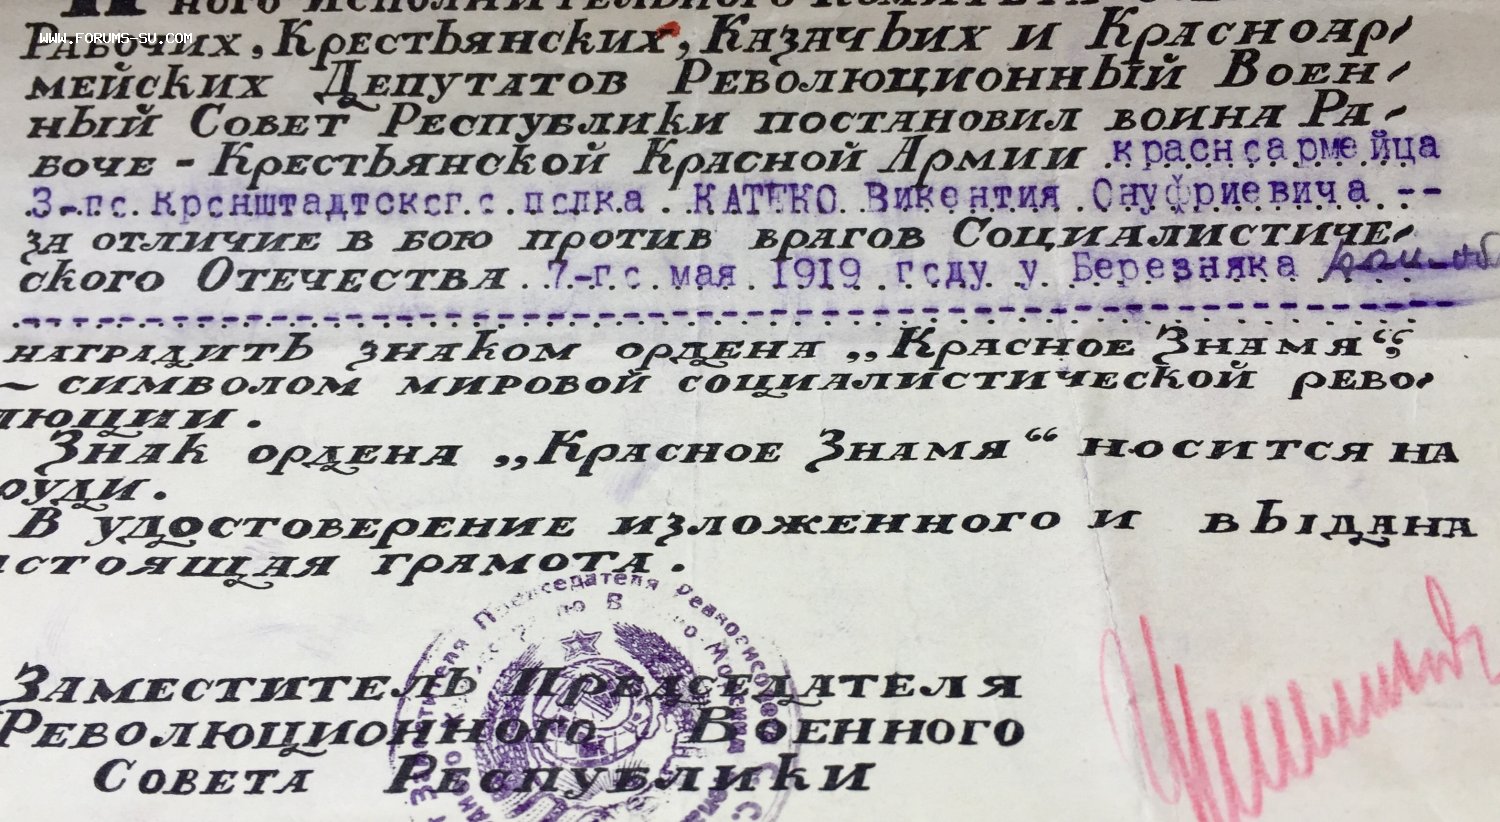 ного Исполнительного Комитета
www.forums-su.com
Рабочих, Крестьянских, Казачьих и Красноар-
мейских Депутатов Революционный Воен-
ный Совет Республики постановил воина Ра-
боче-Крестьянской Красной Армии красноармейца
3-го Кронштадтского полка КАТЕКО Викентия Онуфриевича --
за отличие в бою против врагов Социалистиче-
ского Отечества 7-го мая 1919 году у Березняка
наградить знаком ордена „Красное Знамя“,
~ символом мировой социалистической рево-
люции.
Знак ордена „Красное Знамя“ носится на
руди.
В удостоверение изложенного и выдана
стоящая грамота.
Заместителя Председателя Реввоенсовета
Заместитель Председателя
Революционного Военного
Совета Республики